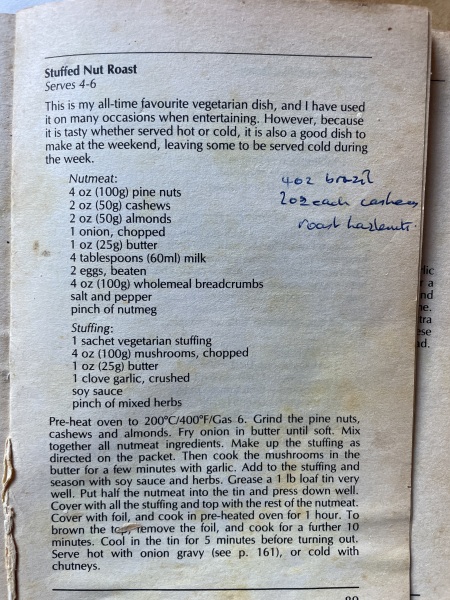 Stuffed Nut Roast
Serves 4-6
This is my all-time favourite vegetarian dish, and I have used
it on many occasions when entertaining. However, because
it is tasty whether served hot or cold, it is also a good dish to
make at the weekend, leaving some to be served cold during
the week.
Nutmeat:
4 oz (100g) pine nuts
2 oz (50g) cashews
2 oz (50g) almonds
1 onion, chopped
1 oz (25g) butter
4 tablespoons (60ml) milk
2 eggs, beaten
4 oz (100g) wholemeal breadcrumbs
salt and pepper
pinch of nutmeg
4oz brazil
2oz each cashews
roast hazlenuts.
Stuffing:
1 sachet vegetarian stuffing
4 oz (100g) mushrooms, chopped
1 oz (25g) butter
1 clove garlic, crushed
soy sauce
pinch of mixed herbs
Pre-heat oven to 200°C/400°F/Gas 6. Grind the pine nuts,
cashews and almonds. Fry onion in butter until soft. Mix
together all nutmeat ingredients. Make up the stuffing as
directed on the packet. Then cook the mushrooms in the
butter for a few minutes with garlic. Add to the stuffing and
season with soy sauce and herbs. Grease a 1 lb loaf tin very
well. Put half the nutmeat into the tin and press down well.
Cover with all the stuffing and top with the rest of the nutmeat.
Cover with foil, and cook in pre-heated oven for 1 hour. To
brown the top, remove the foil, and cook for a further 10
minutes. Cool in the tin for 5 minutes before turning out.
Serve hot with onion gravy (see p. 161), or cold with
chutneys.